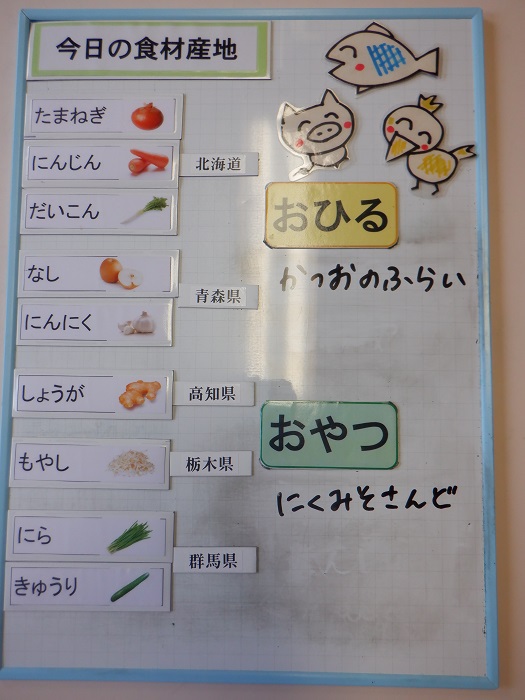 今日の食材産地
たまねぎ
にんじん
北海道
だいこん
なし
青森県
にんにく
しょうが
高知県
もやし
栃木県
にら
群馬県
きゅうり
おひる
かつおのふらい
おやつ
にくみそさんど